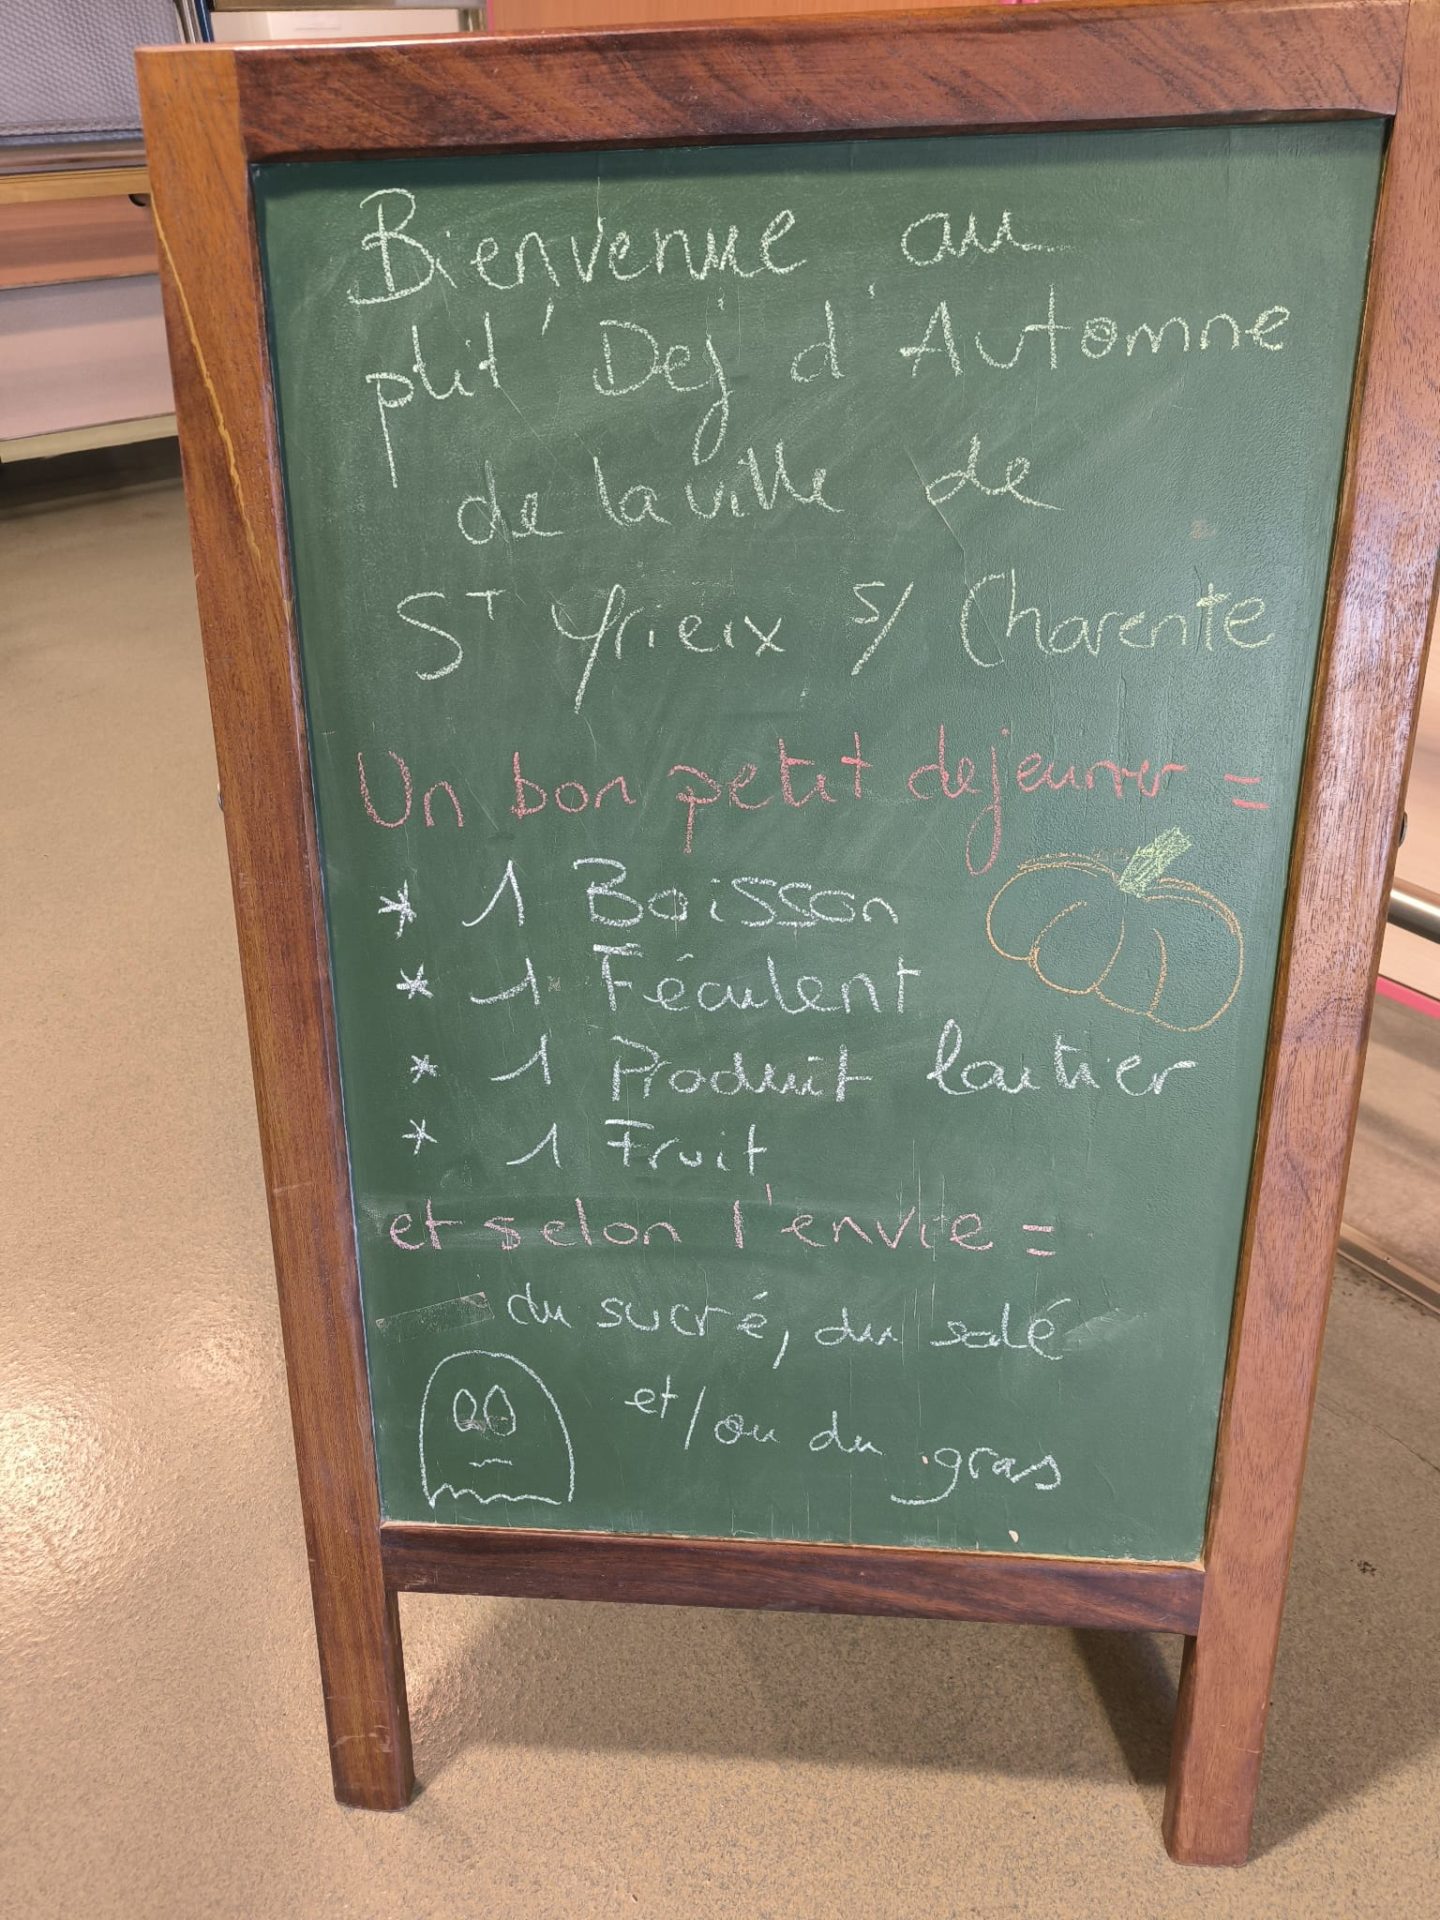 Bienvenue au
ptit' Dej' d'Automne
de la ville de
ST Yrieix s/ Charente
Un bon petit dejeuner =
* 1 Boisson
* 1 Féculent
* 1 Produit laitier
* 1 Fruit
et selon l'envie =
du sucré, du salé
et/ou du gras